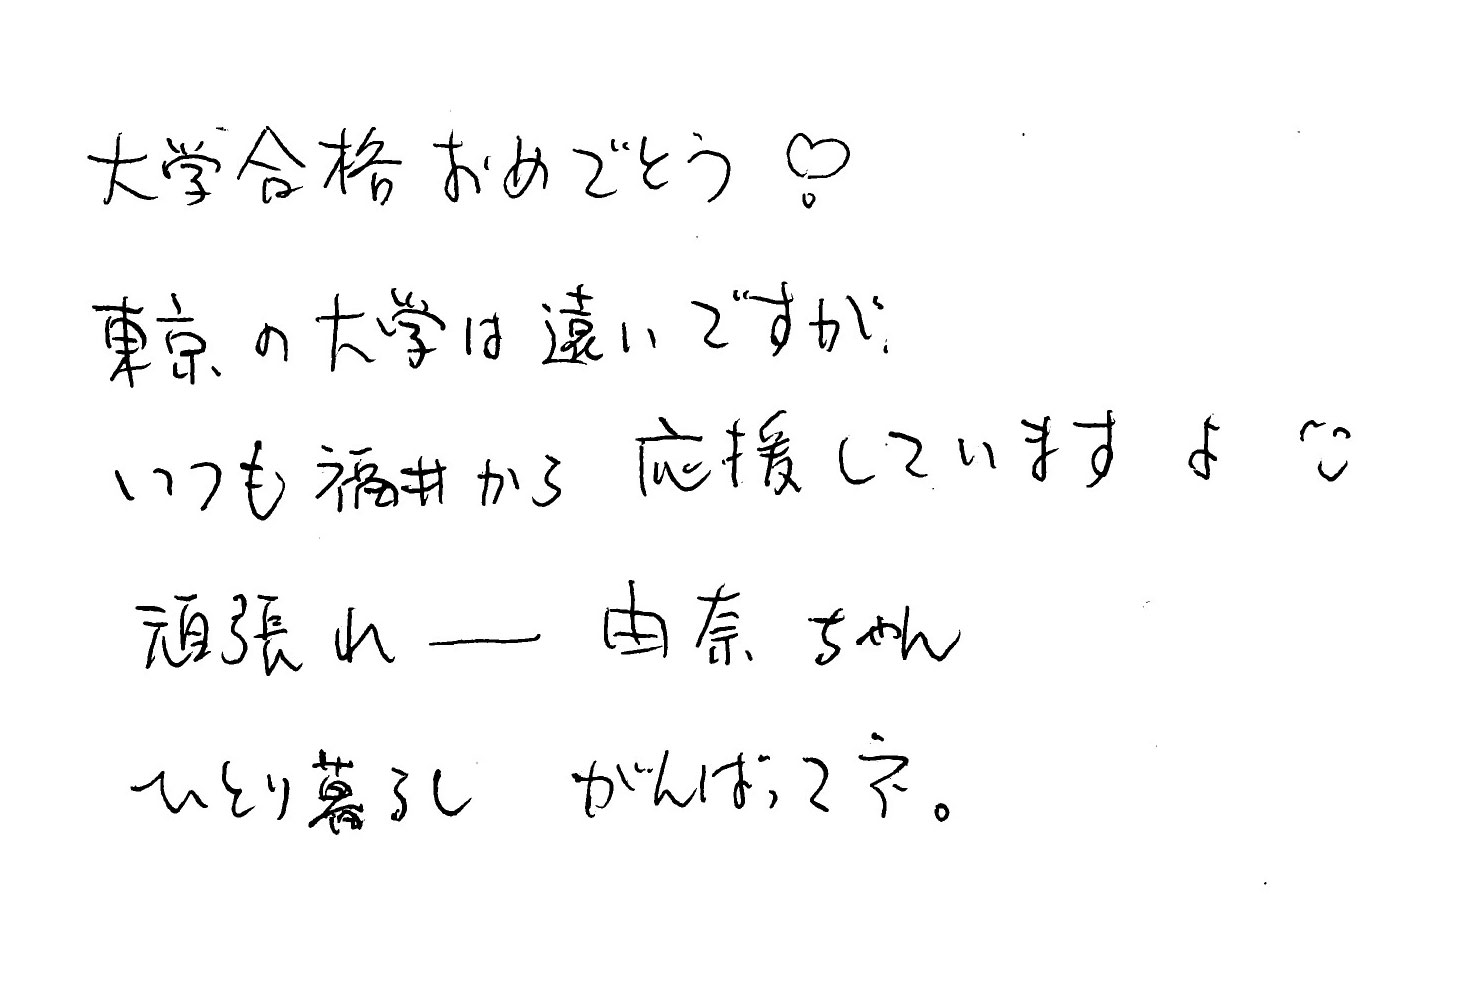 大学合格おめでとう♡
東京の大学は遠いですが、
いつも福井から応援していますよ
頑張れー由奈ちゃん
ひとり暮らし がんばってネ。